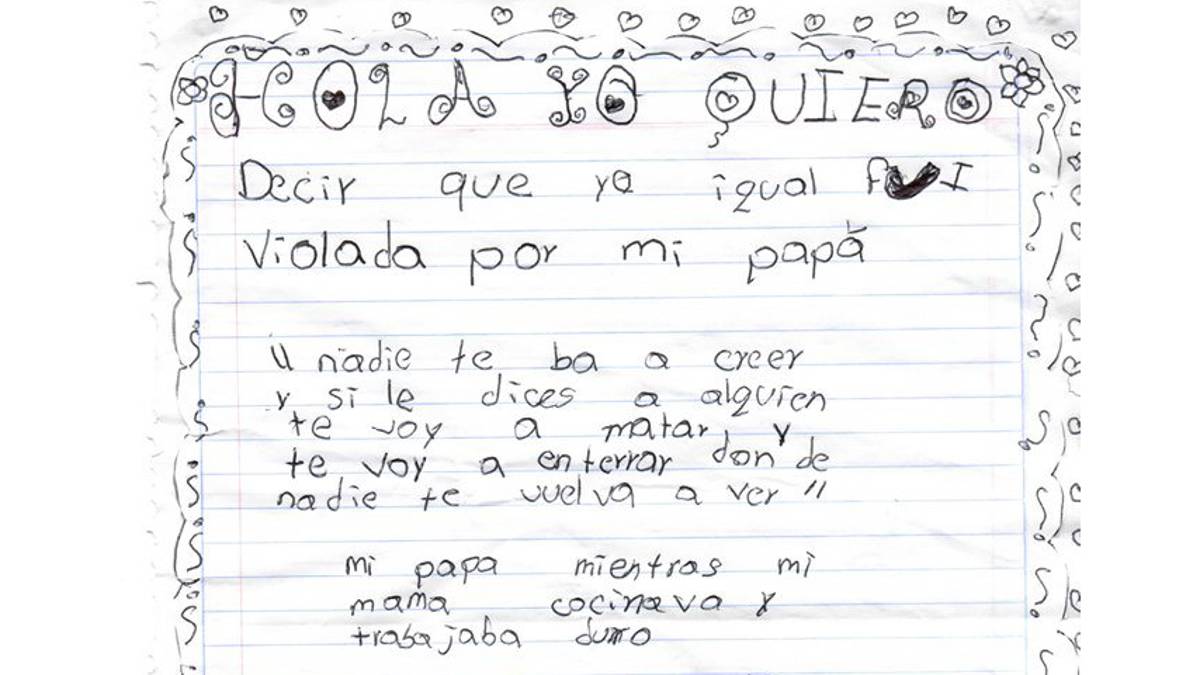 HOLA YO QUIERO
Decir que yo igual fUI
Violada por mi papá
"nadie te ba a creer
y si le dices a alguien
te voy a matar, y
te voy a enterrar don de
nadie te vuelva a ver"
mi papa mientras mi
mama cocinava y
trabajaba durro